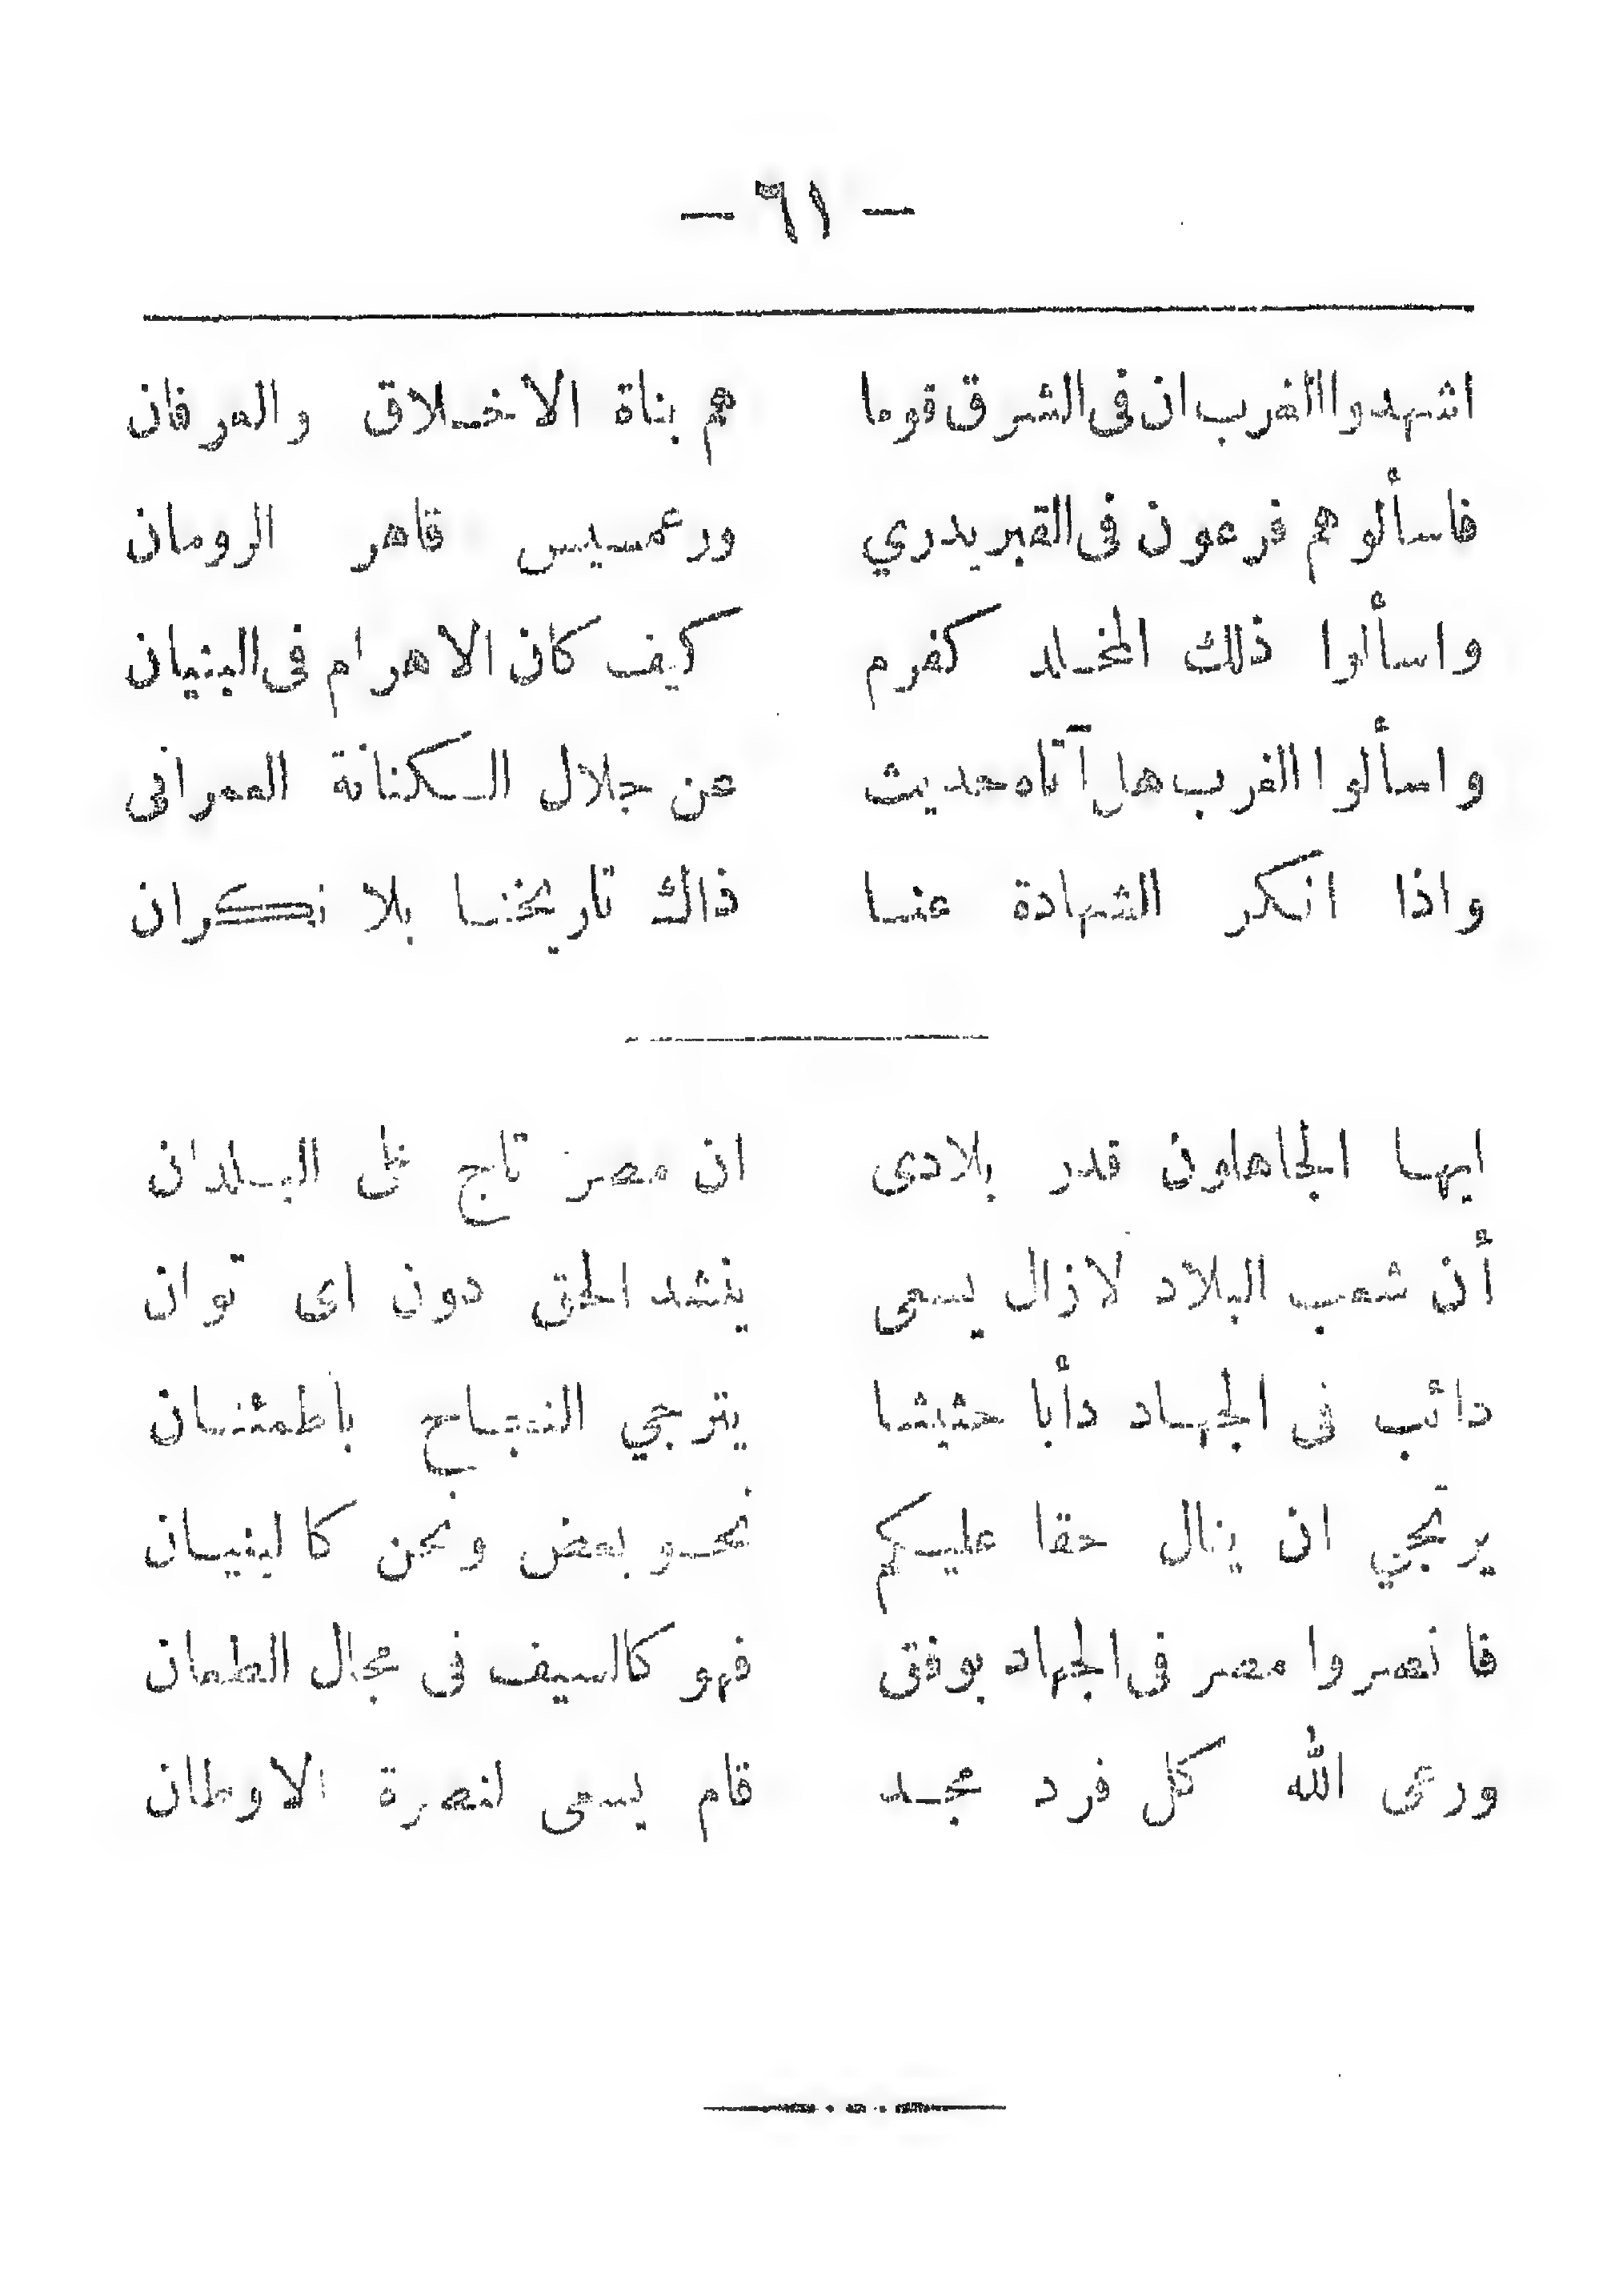 — ٦١ —
اشهدوا الغرب ان فى الشرق قوما هم بناة الاخلاق والعرفان
فاسألوهم فرعون فى القبر يدري ورعمسيس قاهر الرومان
واسألوا ذلك المخلد كفرم كيف كان الاهرام فى البنيان
واسألوا الغرب هل آتاه حديث عن جلال الكنانة العمرانى
واذا انكر الشهادة عنا ذاك تاريخنا بلا نكران
ايها الجاهلون قدر بلادى ان مصر تاج على البلدان
أن شعب البلاد لازال يسعى ينشد الحق دون اى توان
دائب فى الجهاد دأبا حثيثا يترجي النجاح باطمئنان
يرتجي ان ينال حقا عليكم نحو بعض ونحن كالبنيان
فانصروا مصر فى الجهاد بوفق فهو كالسيف فى مجال الطعان
ورعى الله كل فرد مجد قام يسعى لنصرة الاوطان